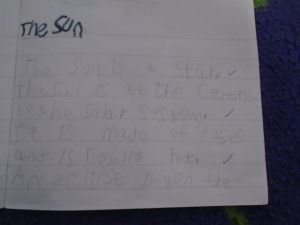 The Sun
The Sun is a Star.
The Sun is at the Centre
of the Solar System.
It is made of gases
and is hot.
An eclipse is wen the